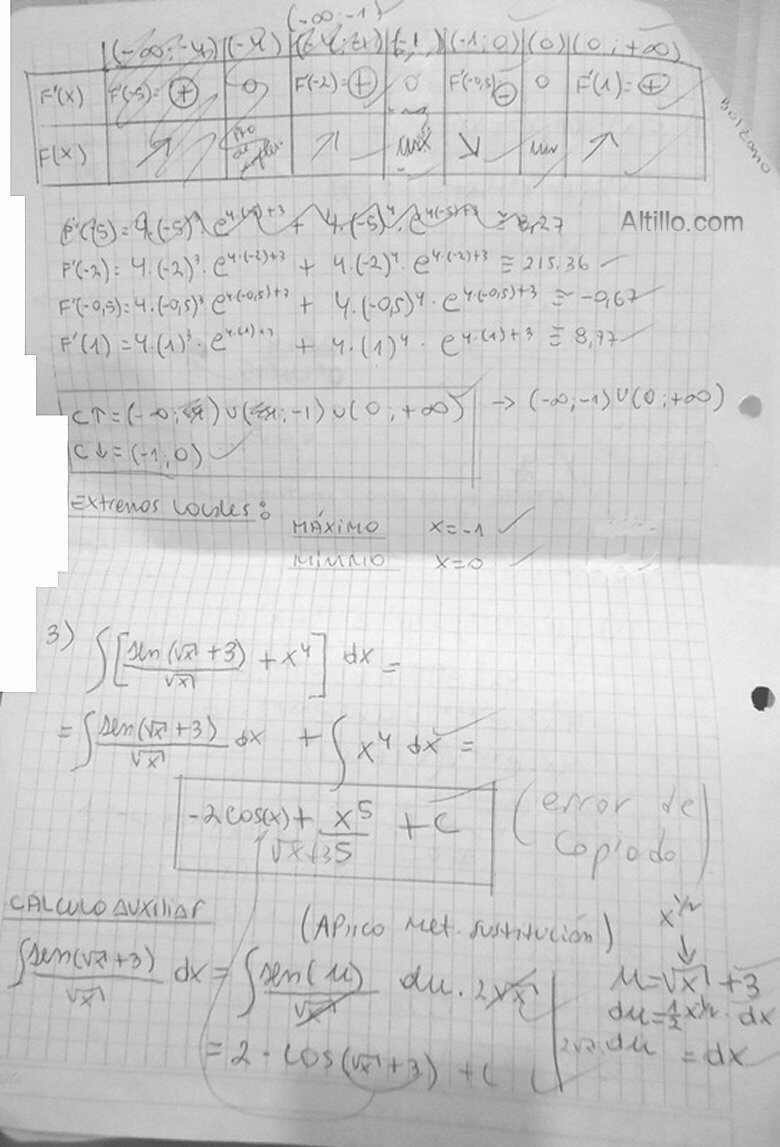 (-∞;-1)
(-∞;-4) (-4) (-4;-1) (-1) (-1;0) (0) (0;+∞)
F'(X) F'(-5)=⊕ 0 F'(-2)=⊕ 0 F'(-0,5)⊖ 0 F'(1)=⊕
F(X) ↗ ↗ máx ↘ mín ↗
Bolzano
Altillo.com
F'(-5)=4.(-5)³.e^4.(-5)+3 + 4.(-5)^4.e^4(-5)+3 ≅ 8,27
F'(-2)=4.(-2)³.e^4.(-2)+3 + 4.(-2)^4.e^4.(-2)+3 ≅ 215.36
F'(-0,5)=4.(-0,5)³.e^4.(-0,5)+3 + 4.(-0,5)^4.e^4.(-0,5)+3 ≅ -0,67
F'(1)=4.(1)³.e^4.(1)+3 + 4.(1)^4.e^4.(1)+3 ≅ 8,77
C↑=(-∞;-4)∪(-4;-1)∪(0;+∞) → (-∞;-1)∪(0;+∞)
C↓=(-1;0)
Extremos Locales:
MÁXIMO X=-1
MÍNIMO X=0
3) ∫[sen(√x+3)/√x + x^4] dx =
= ∫ sen(√x+3)/√x dx + ∫ x^4 dx =
-2cos(x) + x^5/5 + C (error de
√x+3 copiado)
CÁLCULO AUXILIAR
(Aplico Met. sustitución) x^1/2
∫ sen(√x+3)/√x dx = ∫ sen(u)/√x du . 2√x u=√x+3
du=1/2 x^-1/2 . dx
= 2 - cos(√x+3) + C 2√x.du = dx